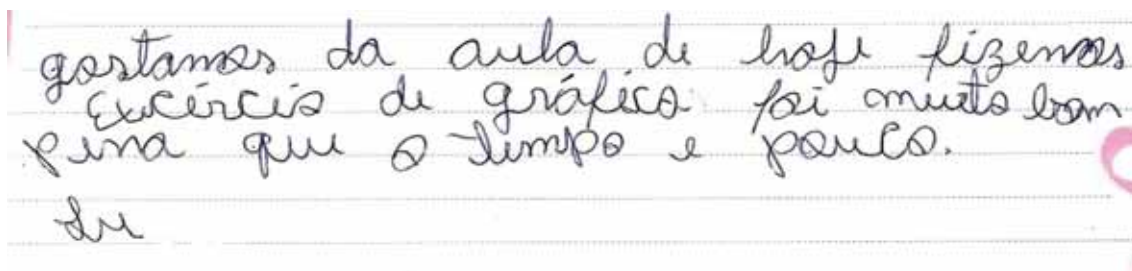 gostamos da aula de hoje fizemos
excercicio de gráfico foi muito bom
pena que o tempo e pouco.
Lu